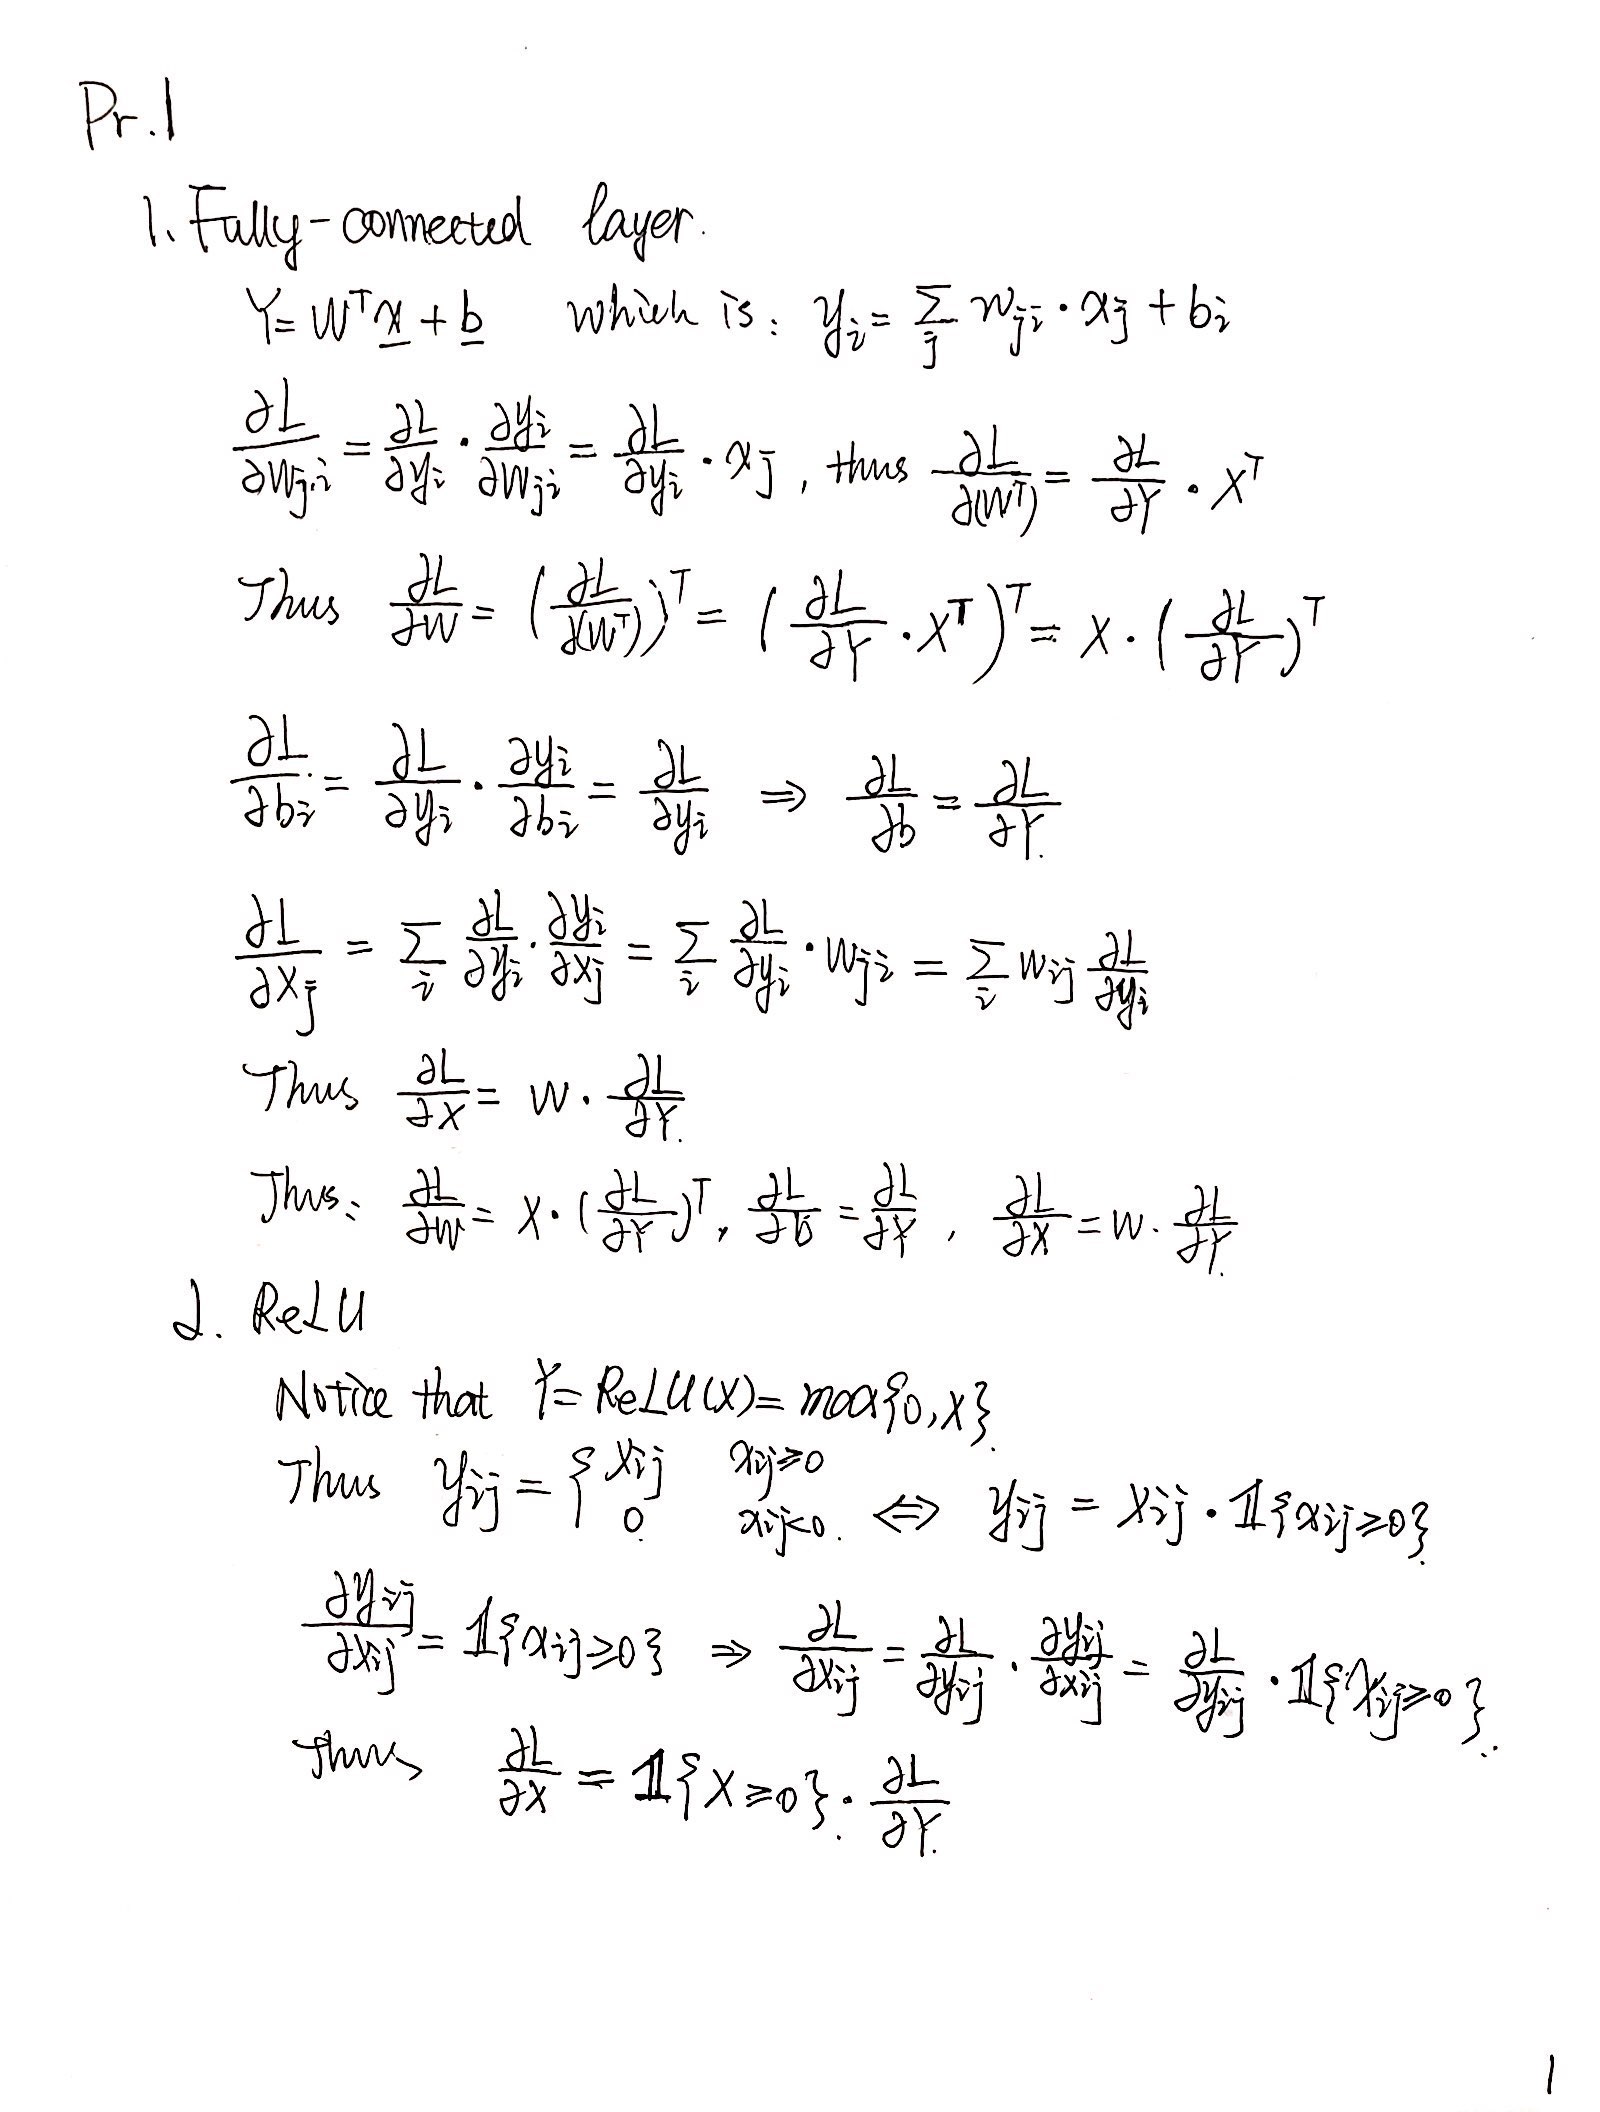 Pr.1
1. Fully-connected layer.
Y = W^T x + b which is: y_i = Σ_j w_ji · x_j + b_i
∂L/∂w_ji = ∂L/∂y_i · ∂y_i/∂w_ji = ∂L/∂y_i · x_j, thus ∂L/∂(W^T) = ∂L/∂Y · X^T
Thus ∂L/∂W = (∂L/∂(W^T))^T = (∂L/∂Y · X^T)^T = X · (∂L/∂Y)^T
∂L/∂b_i = ∂L/∂y_i · ∂y_i/∂b_i = ∂L/∂y_i ⇒ ∂L/∂b = ∂L/∂Y.
∂L/∂x_j = Σ_i ∂L/∂y_i · ∂y_i/∂x_j = Σ_i ∂L/∂y_i · w_ji = Σ_i w_ij ∂L/∂y_i
Thus ∂L/∂X = W · ∂L/∂Y.
Thus: ∂L/∂W = X · (∂L/∂Y)^T, ∂L/∂b = ∂L/∂Y, ∂L/∂X = W · ∂L/∂Y.
2. ReLU
Notice that Y = ReLU(X) = max{0, X}.
Thus y_ij = { x_ij x_ij ≥ 0
0 x_ij < 0. ⇔ y_ij = x_ij · 𝟙{x_ij ≥ 0}.
∂y_ij/∂x_ij = 𝟙{x_ij ≥ 0} ⇒ ∂L/∂x_ij = ∂L/∂y_ij · ∂y_ij/∂x_ij = ∂L/∂y_ij · 𝟙{x_ij ≥ 0}.
Thus ∂L/∂X = 𝟙{X ≥ 0} · ∂L/∂Y.
1